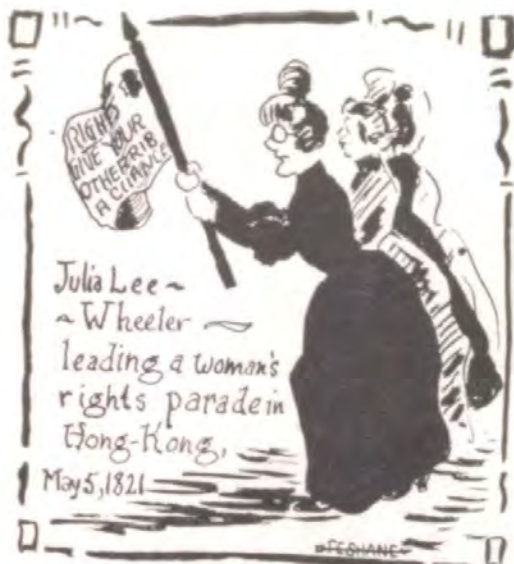 RIGHTS
GIVE YOUR
OTHER RIB
A CHANCE
Julia Lee ~
~ Wheeler ~
leading a woman's
rights parade in
Hong-Kong,
May 5, 1821
FESHANE